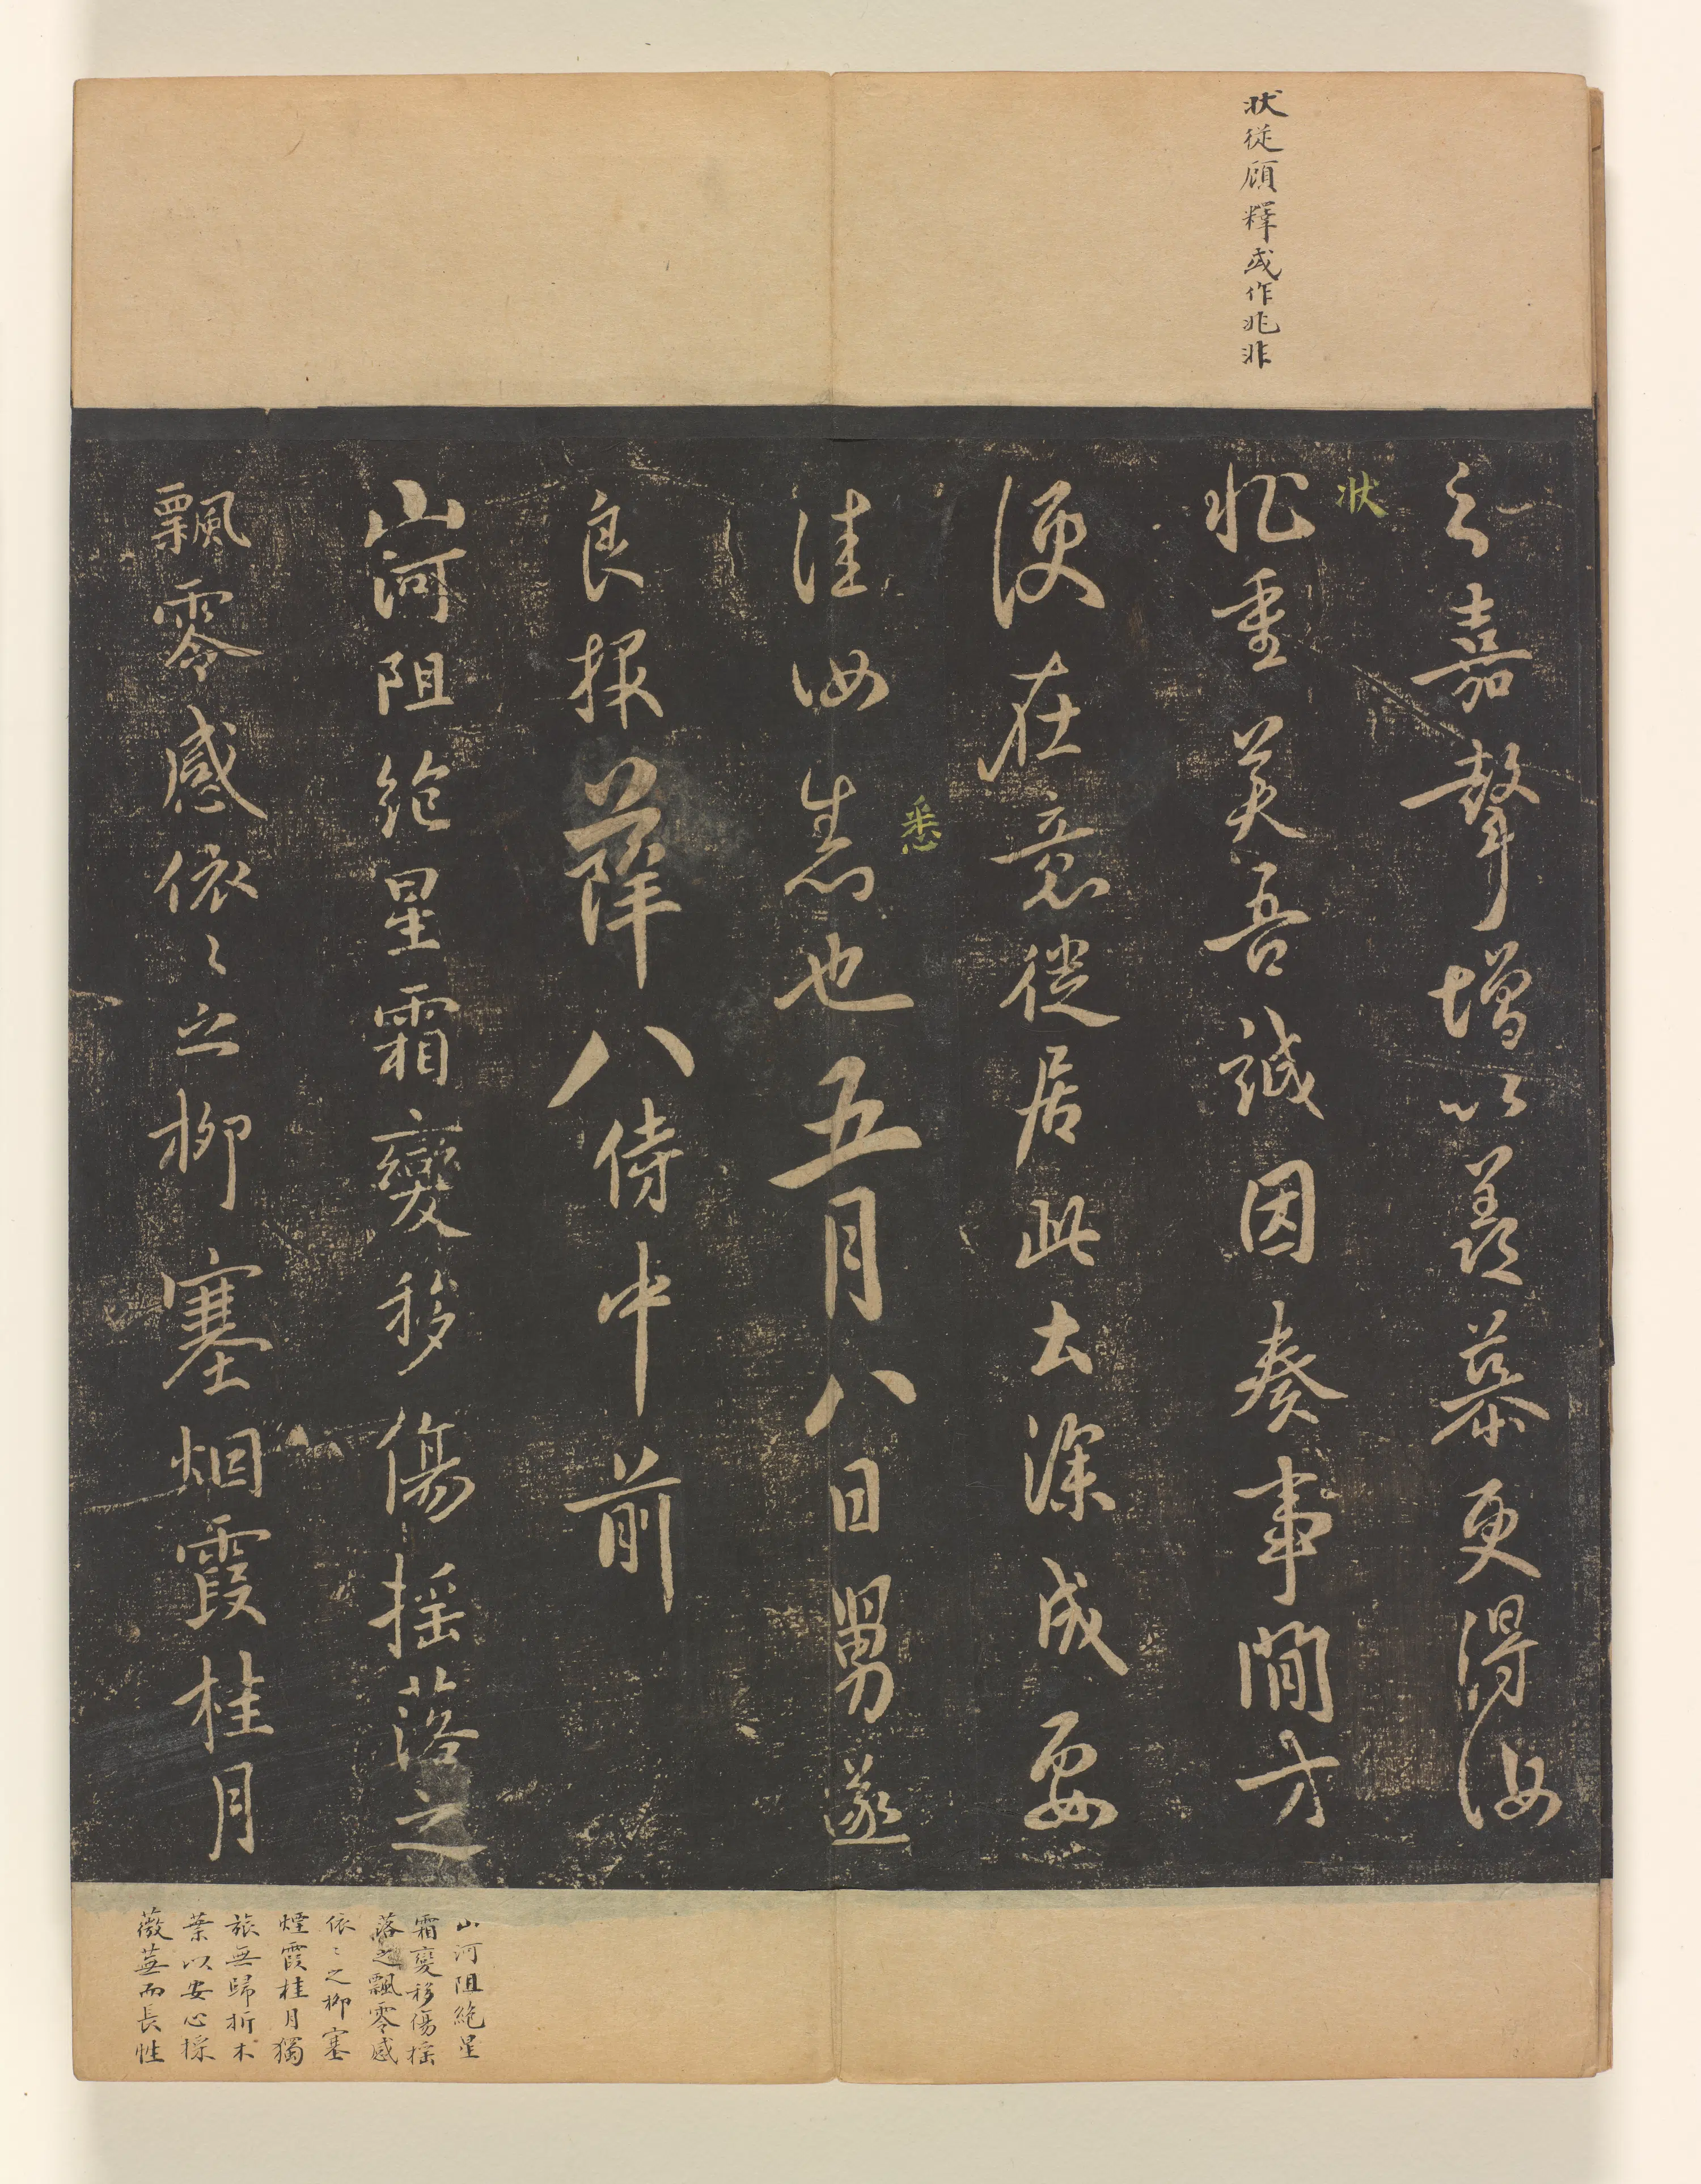 状從顧釋或作兆非
嘉聲增以羨慕更得汝
状
状重美吾誠因奏事間方
便在意從居此去深成要
悉
佳汝悉也五月八日舅遂
良報薛八侍中前
山河阻絶星霜變移傷摇落之
飄零感依々之柳塞烟霞桂月
山河阻絶星
霜變移傷摇
落之飄零感
依々之柳塞
煙霞桂月獨
旅無歸折木
葉以安心採
薇蕪而長性